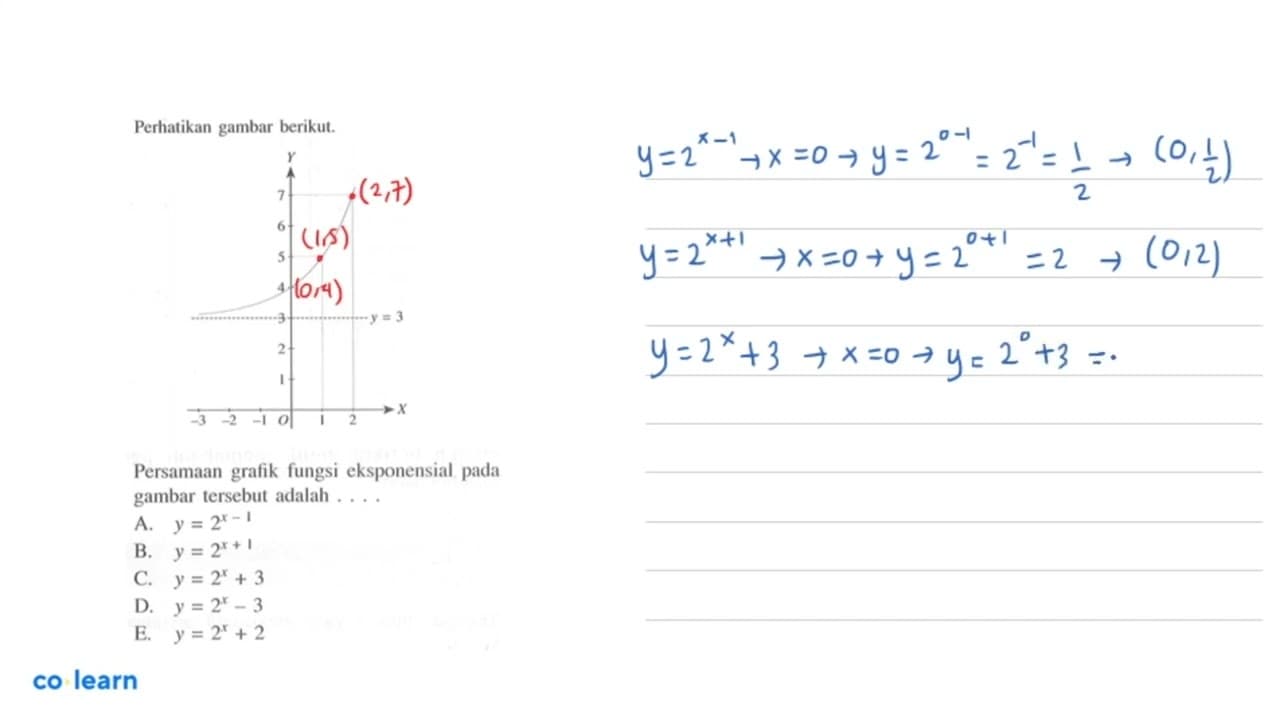 Perhatikan gambar berikut.
Y
7
(2,7)
6
(1,5)
5
4
(0,4)
3
y = 3
2
1
-3 -2 -1 O 1 2 X
Persamaan grafik fungsi eksponensial pada
gambar tersebut adalah . . . .
A. y = 2^{x – 1}
B. y = 2^{x + 1}
C. y = 2^x + 3
D. y = 2^x – 3
E. y = 2^x + 2
co learn
y = 2^{x-1} → x = 0 → y = 2^{0-1} = 2^{-1} = 1/2 → (0, 1/2)
y = 2^{x+1} → x = 0 → y = 2^{0+1} = 2 → (0,2)
y = 2^x + 3 → x = 0 → y = 2^0 + 3 =